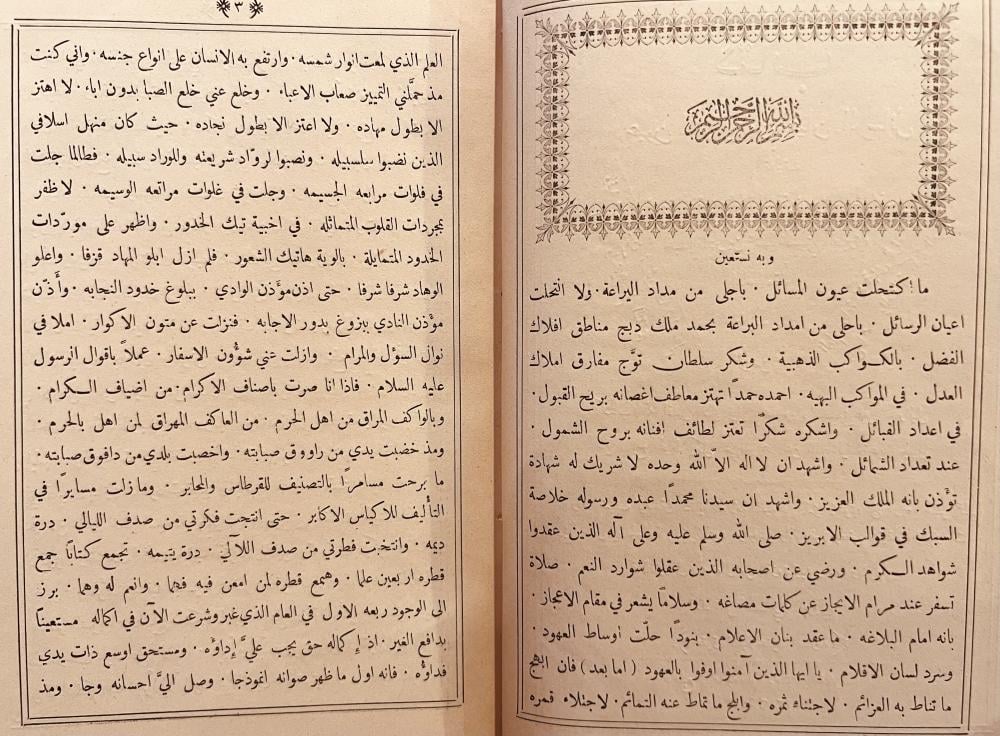 بسم الله الرحمن الرحيم
وبه نستعين
ما اكتحلت عيون المسائل ٠ باجلى من مداد اليراعة ٠ ولا انتحلت
اعيان الرسائل ٠ باحلى من امداد البراعة بحمد ملك دبج مناطق افلاك
الفضل ٠ بالكواكب الذهبية ٠ وشكر سلطان توّج مفارق املاك
العدل ٠ في المواكب البهيه ٠ احمده حمدًا تهتز معاطف اغصانه بريح القبول ٠
في اعداد القبائل ٠ واشكره شكرًا تعتز لطائف افنانه بروح الشمول ٠
عند تعداد الشمائل ٠ واشهد ان لا اله الاّ الله وحده لا شريك له شهادة
تؤذن بانه الملك العزيز ٠ واشهد ان سيدنا محمدًا عبده ورسوله خلاصة
السبك في قوالب الابريز ٠ صلى الله وسلم عليه وعلى آله الذين عقدوا
شواهد الكرم ٠ ورضي عن اصحابه الذين عقلوا شوارد النعم ٠ صلاة
تسفر عند مرام الايجاز عن كلمات مصاغه ٠ وسلامًا يشعر في مقام الاعجاز ٠
بانه امام البلاغه ٠ ما عقد بنان الاعلام ٠ بنودًا حلّت اوساط العهود ٠
وسرد لسان الاقلام ٠ يا ايها الذين آمنوا اوفوا بالعهود ( اما بعد ) فان ابهج
ما تناط به العزائم ٠ لاجتناء ثمره ٠ وابلج ما تماط عنه التمائم ٠ لاجتلاء قمره
٣
العلم الذي لمعت انوار شمسه ٠ وارتفع به الانسان على انواع جنسه ٠ واني كنت
مذ حملّني التمييز صعاب الاعباء ٠ وخلع عني خلع الصبا بدون اباء ٠ لا اهتز
الا بطول مهاده ٠ ولا اعتز الا بطول نجاده ٠ حيث كان منهل اسلافي
الذين نضبوا سلسبيله ٠ ونصبوا لروّاد شريعته وللوراد سبيله ٠ فطالما جلت
في فلوات مرابعه الجسيمه ٠ وجلت في غلوات مراتعه الوسيمه ٠ لاظفر
بمجردات القلوب المتماثله ٠ في اخبية تيك الخدور ٠ واظهر على مورّدات
الخدود المتمايلة ٠ بالوية هاتيك الشعور ٠ فلم ازل ابلو المهاد قزفا ٠ واعلو
الوهاد شرفا شرفا ٠ حتى اذن مؤذن الوادي ٠ ببلوغ خدود النجابه ٠ وأذّن
مؤذن النادي ببزوغ بدور الاجابه ٠ فنزلت عن متون الاكوار ٠ املا في
نوال السؤل والمرام ٠ وازلت عني شؤون الاسفار ٠ عملاً باقوال الرسول
عليه السلام ٠ فاذا انا صرت باصناف الاكرام ٠ من اضياف الكرام ٠
وبالواكف المراق من اهل الحرم ٠ من العاكف المهراق لمن اهل بالحرم ٠
ومذ خضبت يدي من راووق صبابته ٠ واخصبت بلدي من دافوق صبابته ٠
ما برحت مسامرًا بالتصنيف للقرطاس والمحابر ٠ وما زلت مسايرًا في
التأليف للاكياس الاكابر ٠ حتى انتجت فكرتي من صدف الليالي ٠ درة
ديمه ٠ وانتخبت فطرتي من صدف اللآلي ٠ درة يتيمه ٠ تجمع كتابًا جمع
قطره اربعين علما ٠ وهمع قطره لمن امعن فيه فهما ٠ وانعم له وهما ٠ برز
الى الوجود ربعه الاول في العام الذي غبر وشرعت الآن في اكماله مستعينًا
بدافع الغير ٠ اذ اكماله حق يجب عليَّ إداؤه ٠ ومستحق اوسع ذات يدي
فداؤه ٠ فانه اول ما ظهر صوانه انموذجا ٠ وصل اليَّ احسانه وجا ٠ ومذ